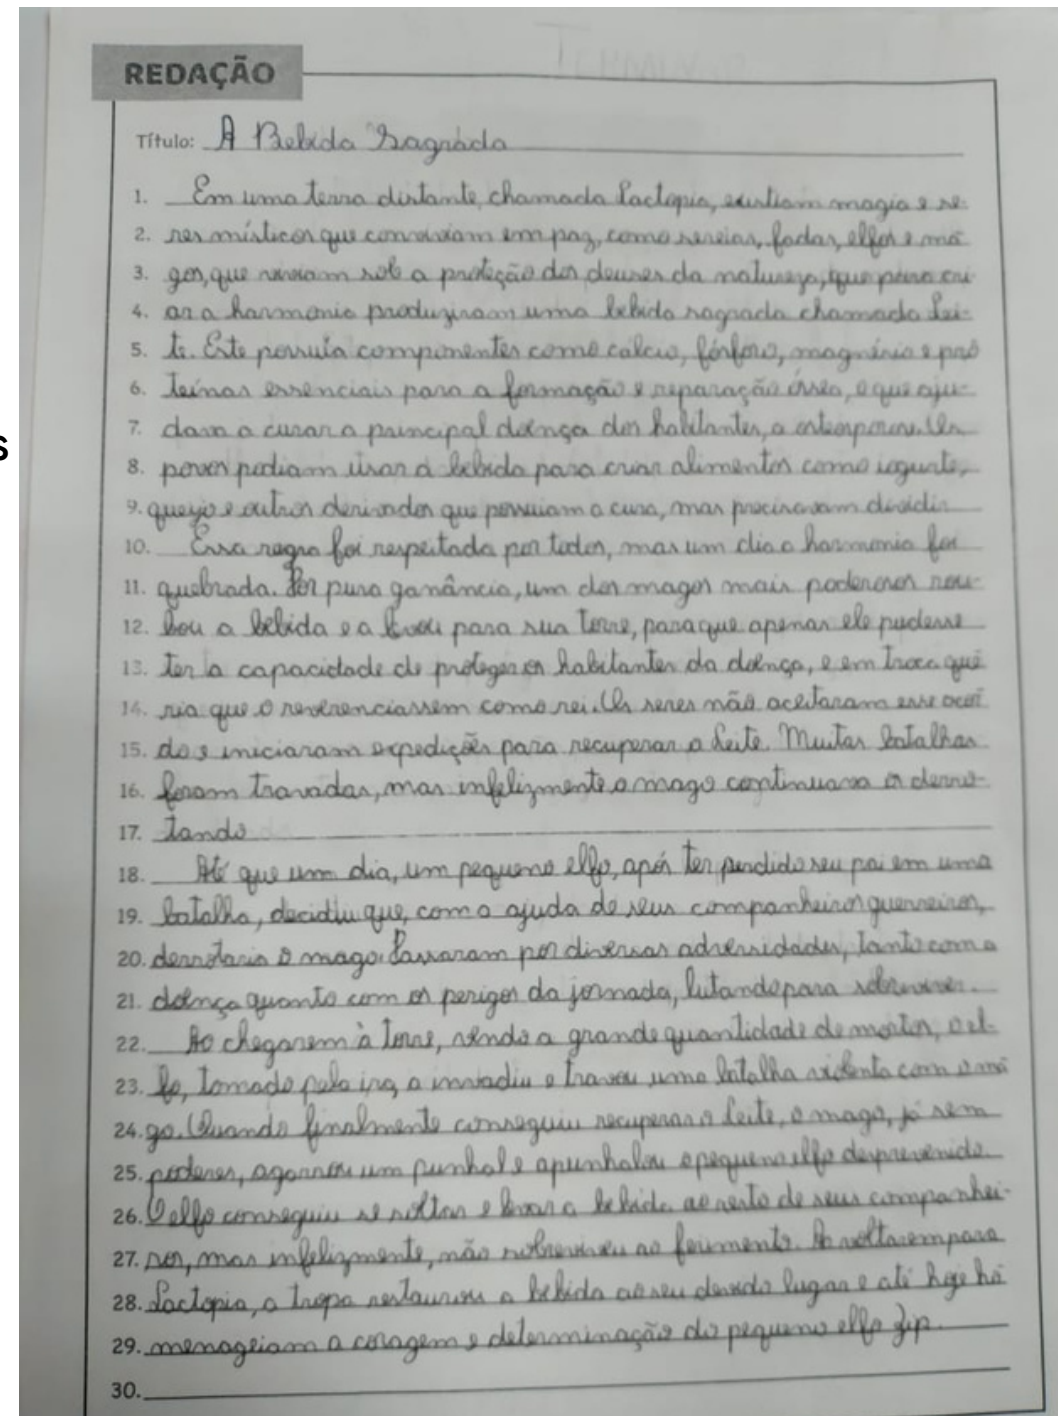 s
REDAÇÃO
Título: A Bebida Sagrada
1. Em uma terra distante, chamada Lactopia, existiam magia e se-
2. res místicos que conviviam em paz, como sereias, fadas, elfos e ma
3. gos, que viviam sob a proteção dos deuses da natureza, que para cri
4. ar a harmonia produziram uma bebida sagrada chamada Lei-
5. te. Este possuía componentes como cálcio, fósforo, magnésio e pro
6. teínas essenciais para a formação e reparação óssea, o que aju-
7. dava a curar a principal doença dos habitantes, a osteoporose. Os
8. povos podiam usar a bebida para criar alimentos como iogurte,
9. queijo e outros derivados que possuiam a cura, mas precisavam dividir
10. Essa regra foi respeitada por todos, mas um dia a harmonia foi
11. quebrada. Por pura ganância, um dos magos mais poderosos rou-
12. bou a bebida e a levou para sua torre, para que apenas ele pudesse
13. ter a capacidade de proteger os habitantes da doença, e em troca que
14. ria que o reverenciassem como rei. Os seres não aceitaram esse acor
15. do e iniciaram expedições para recuperar o Leite. Muitas batalhas
16. foram travadas, mas infelizmente o mago continuava os derro-
17. tando
18. Até que um dia, um pequeno elfo, após ter perdido seu pai em uma
19. batalha, decidiu que, com a ajuda de seus companheiros guerreiros,
20. derrotaria o mago. Passaram por diversas adversidades, tanto com a
21. doença quanto com os perigos da jornada, lutando para sobreviver.
22. Ao chegarem à torre, vendo a grande quantidade de mortos, o el-
23. fo, tomado pela ira, a invadiu e travou uma batalha violenta com o ma
24. go. Quando finalmente conseguiu recuperar o Leite, o mago, já sem
25. poderes, agarrou um punhal e apunhalou o pequeno elfo desprevenido.
26. O elfo conseguiu se soltar e levar a bebida ao resto de seus companhei-
27. ros, mas infelizmente, não sobreviveu ao ferimento. Ao voltarem para
28. Lactopia, a tropa restaurou a bebida ao seu devido lugar e até hoje ho
29. menageiam a coragem e determinação do pequeno elfo Zip.
30.